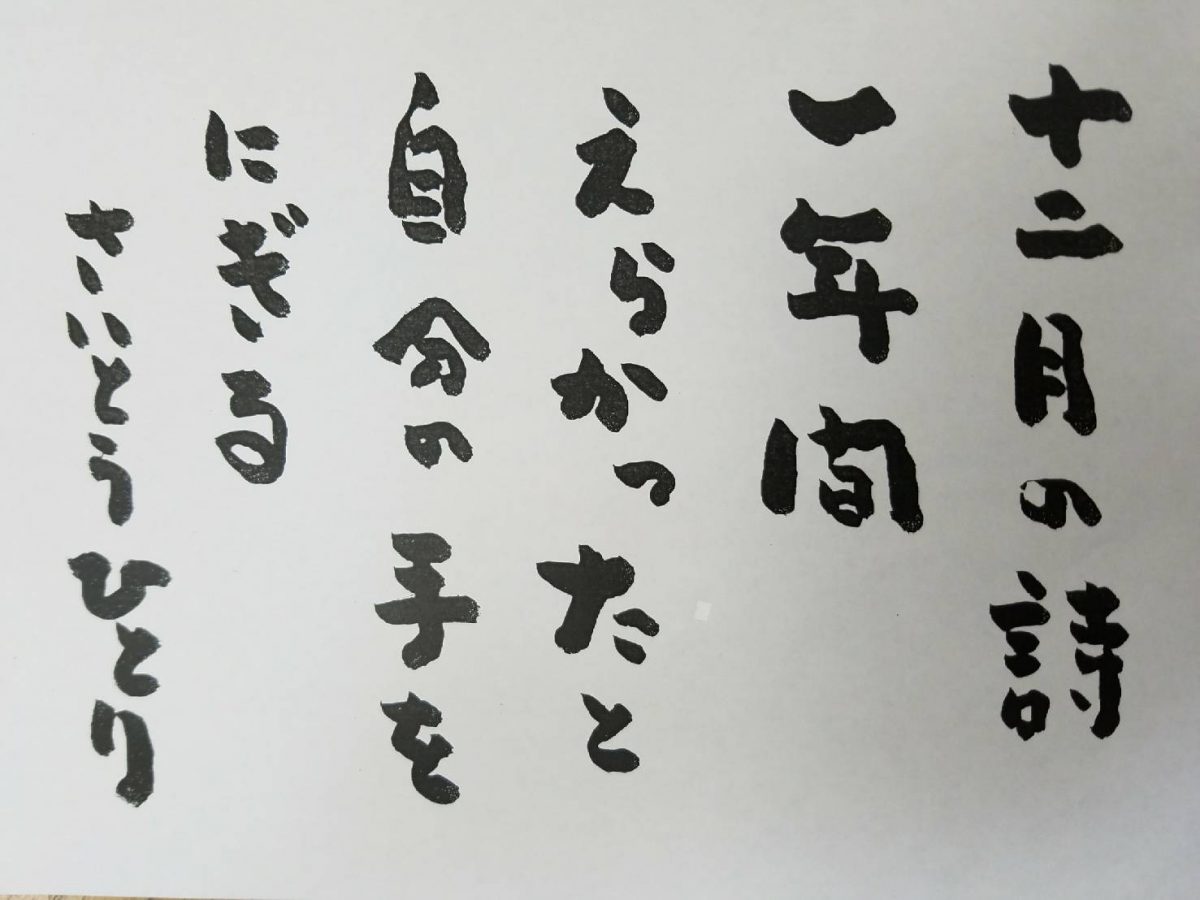 十二月の詩
一年間
えらかったと
自分の手を
にぎる
さいとうひとり